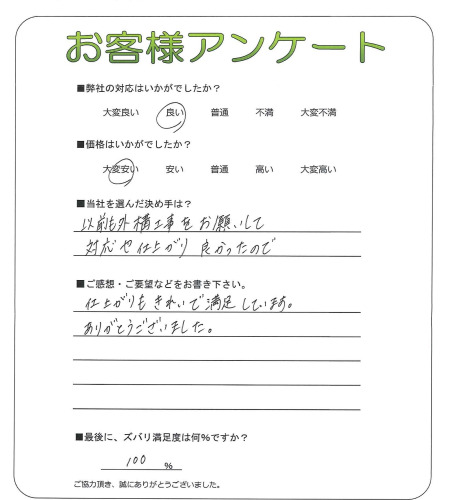 お客様アンケート
■弊社の対応はいかがでしたか？
大変良い 良い 普通 不満 大変不満
■価格はいかがでしたか？
大変安い 安い 普通 高い 大変高い
■当社を選んだ決め手は？
以前も外構工事をお願いして
対応や仕上がり良かったので
■ご感想・ご要望などをお書き下さい。
仕上がりもきれいで満足しています。
ありがとうございました。
■最後に、ズバリ満足度は何%ですか？
100 %
ご協力頂き、誠にありがとうございました。